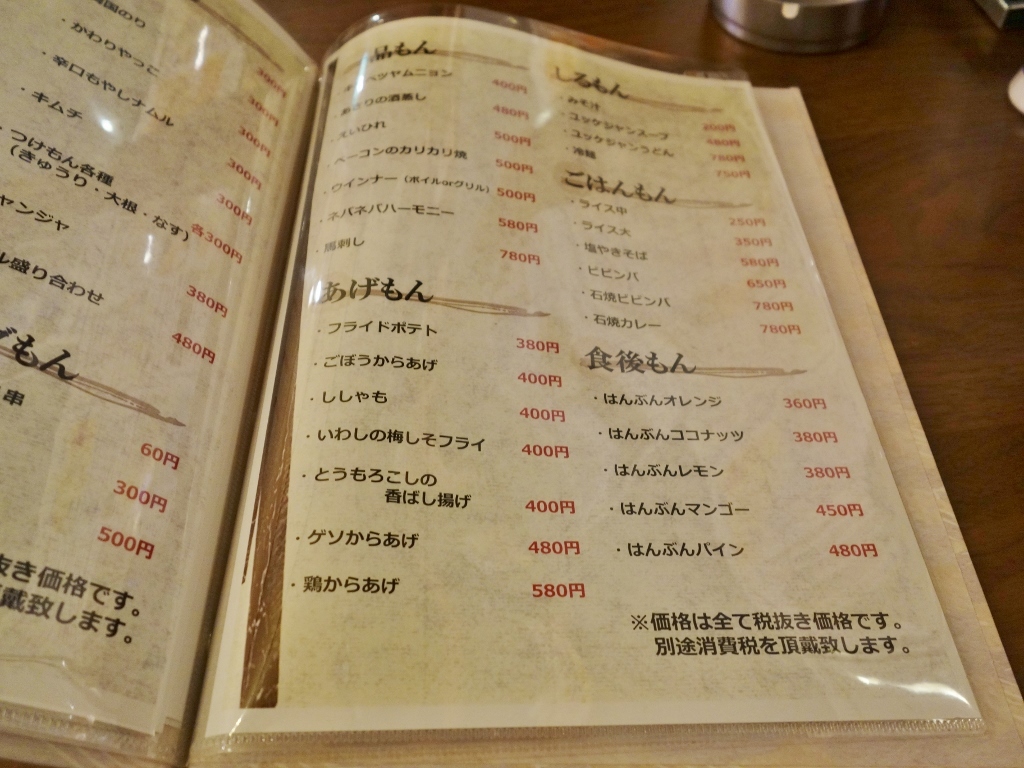 国のり 300円
・かわりやっこ 300円
・辛口もやしナムル 300円
・キムチ 300円
・つけもん各種 300円
(きゅうり・大根・なす) 各300円
ャンジャ 380円
ル盛り合わせ 480円
もん
串
60円
300円
500円
抜き価格です。
頂戴致します。
品もん
ヘツヤムニョン 400円
りの酒蒸し 480円
・えいひれ 500円
・ベーコンのカリカリ焼 500円
・ウインナー(ボイルorグリル) 500円
・ネバネバハーモニー 580円
・馬刺し 780円
あげもん
・フライドポテト 380円
・ごぼうからあげ 400円
・ししゃも 400円
・いわしの梅しそフライ 400円
・とうもろこしの
香ばし揚げ 400円
・ゲソからあげ 480円
・鶏からあげ 580円
しるもん
・みそ汁 200円
・ユッケジャンスープ 480円
・ユッケジャンうどん 780円
・冷麺 750円
ごはんもん
・ライス中 250円
・ライス大 350円
・塩やきそば 580円
・ビビンバ 650円
・石焼ビビンバ 780円
・石焼カレー 780円
食後もん
・はんぶんオレンジ 360円
・はんぶんココナッツ 380円
・はんぶんレモン 380円
・はんぶんマンゴー 450円
・はんぶんパイン 480円
※価格は全て税抜き価格です。
別途消費税を頂戴致します。